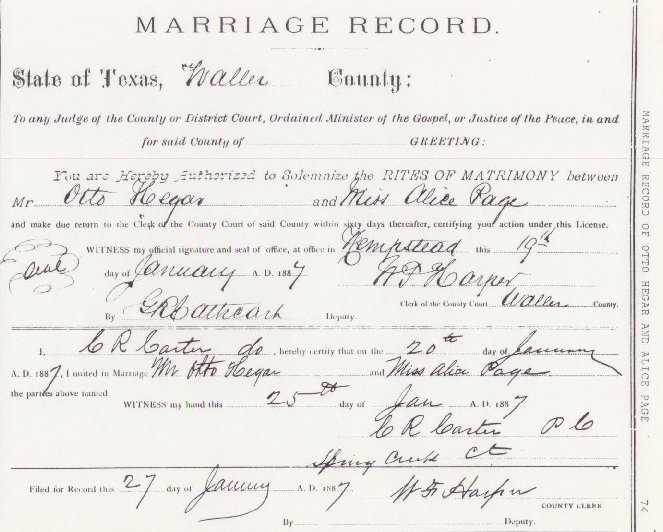 MARRIAGE RECORD.
State of Texas, Waller County:
To any Judge of the County or District Court, Ordained Minister of the Gospel, or Justice of the Peace, in and
for said County of GREETING:
You are Hereby Authorized to Solemnize the RITES OF MATRIMONY between
Mr. Otto Hegar and Miss Alice Page
and make due return to the Clerk of the County Court of said County within sixty days thereafter, certifying your action under this License.
WITNESS my official signature and seal of office, at office in Hempstead this 19th
seal
day of January A. D. 1887
W F Harper
Clerk of the County Court Waller County.
By G R Cathcart Deputy.
I, C R Carter do, hereby certify that on the 20th day of January
A. D. 1887, I united in Marriage Mr Otto Hegar and Miss Alice Page
the parties above named
WITNESS my hand this 25th day of Jan A. D. 1887
C R Carter P C
Spring Creek Ct
Filed for Record this 27 day of January A. D. 1887.
W F Harper
COUNTY CLERK
By Deputy.
MARRIAGE RECORD OF OTTO HEGAR AND ALICE PAGE